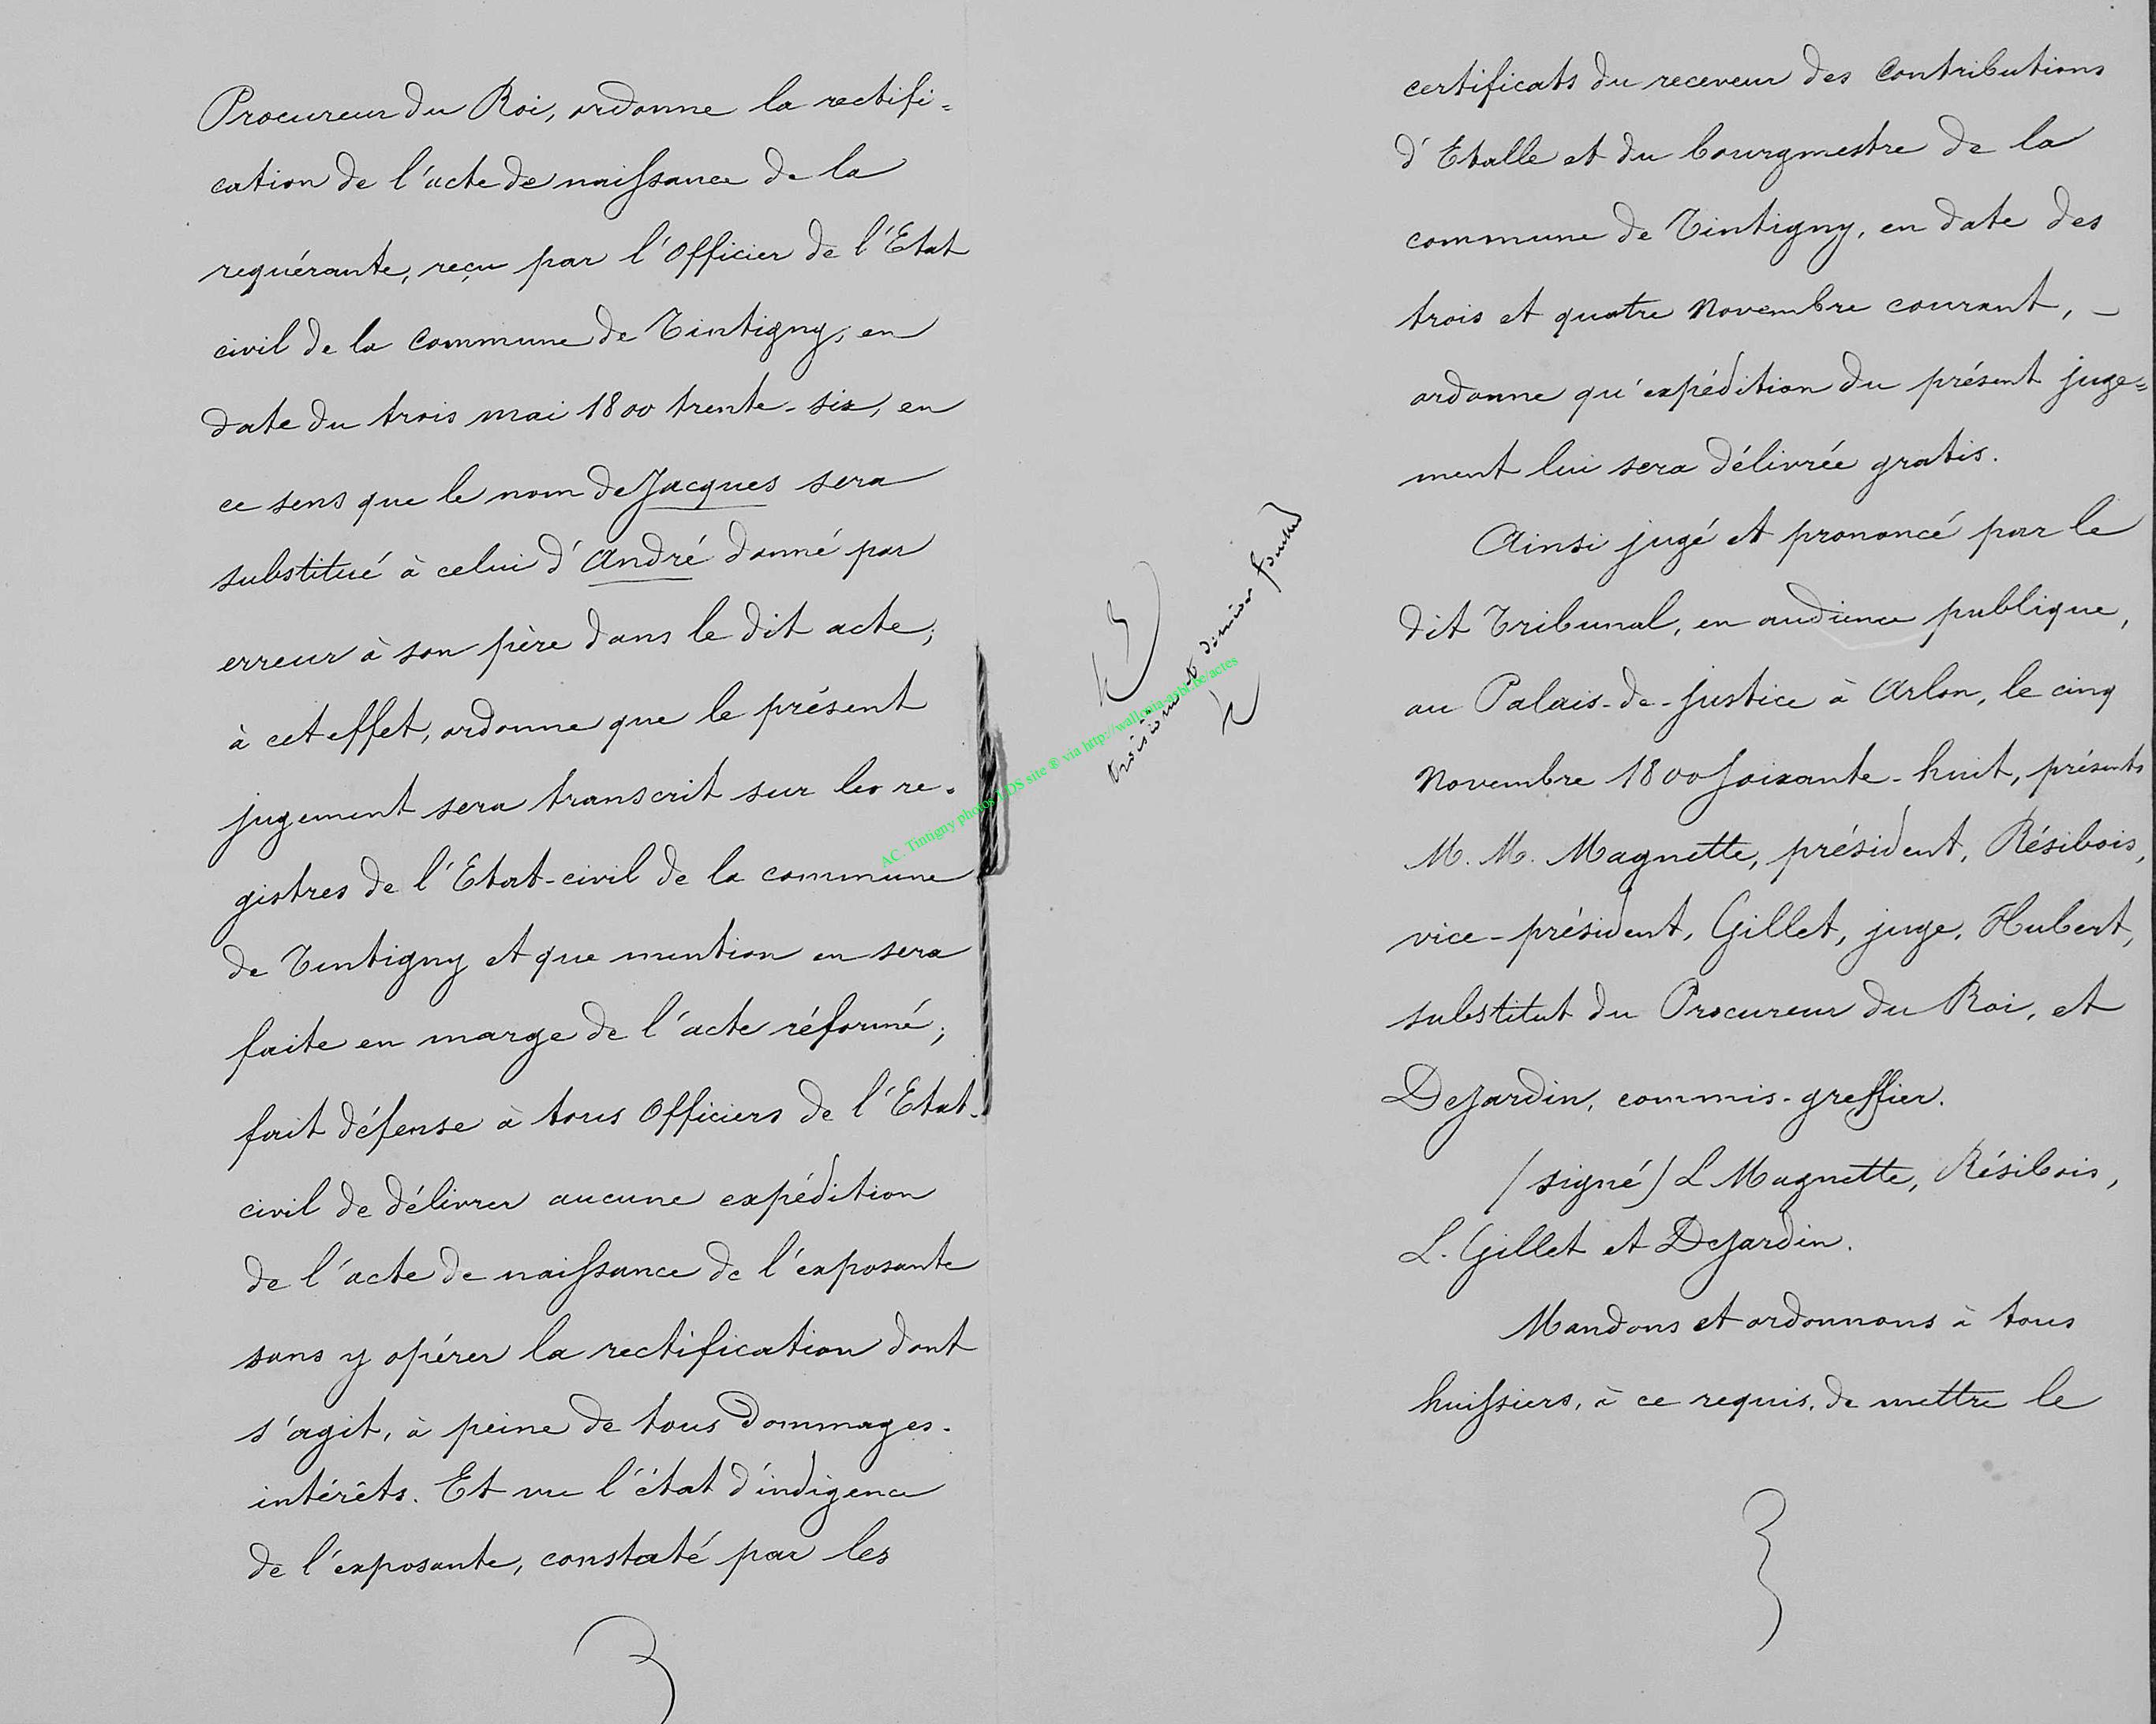 Procureur du Roi, ordonne la rectifi=
cation de l'acte de naissance de la
requérante, reçu par l'Officier de l'Etat
civil de la Commune de Tintigny, en
date du trois mai 1800 trente-six, en
ce sens que le nom de Jacques sera
substitué à celui d'André donné par
erreur à son père dans le dit acte;
à cet effet, ordonne que le présent
jugement sera transcrit sur les re-
gistres de l'Etat-civil de la commune
de Tintigny et que mention en sera
faite en marge de l'acte réformé;
fait défense à tous Officiers de l'Etat-
civil de délivrer aucune expédition
de l'acte de naissance de l'exposante
sans y opérer la rectification dont
s'agit, à peine de tous dommages-
intérêts. Et vu l'état d'indigence
de l'exposante, constaté par les
troisième et dernier
AC. Tintigny photos LDS site ® via http://wallonia-asbl.be/actes
certificats du receveur des Contributions
d'Etalle et du bourgmestre de la
commune de Tintigny, en date des
trois et quatre Novembre courant, –
ordonne qu'expédition du présent juge=
ment lui sera délivrée gratis.
Ainsi jugé et prononcé par le
dit Tribunal, en audience publique,
au Palais-de-Justice à Arlon, le cinq
Novembre 1800 soixante-huit, présents
M. M. Magnette, président, Résibois,
vice-président, Gillet, juge, Hubert,
substitut du Procureur du Roi, et
DeJardin, commis-greffier.
(signé) L Magnette, Résibois,
L. Gillet et DeJardin.
Mandons et ordonnons à tous
huissiers, à ce requis, de mettre le